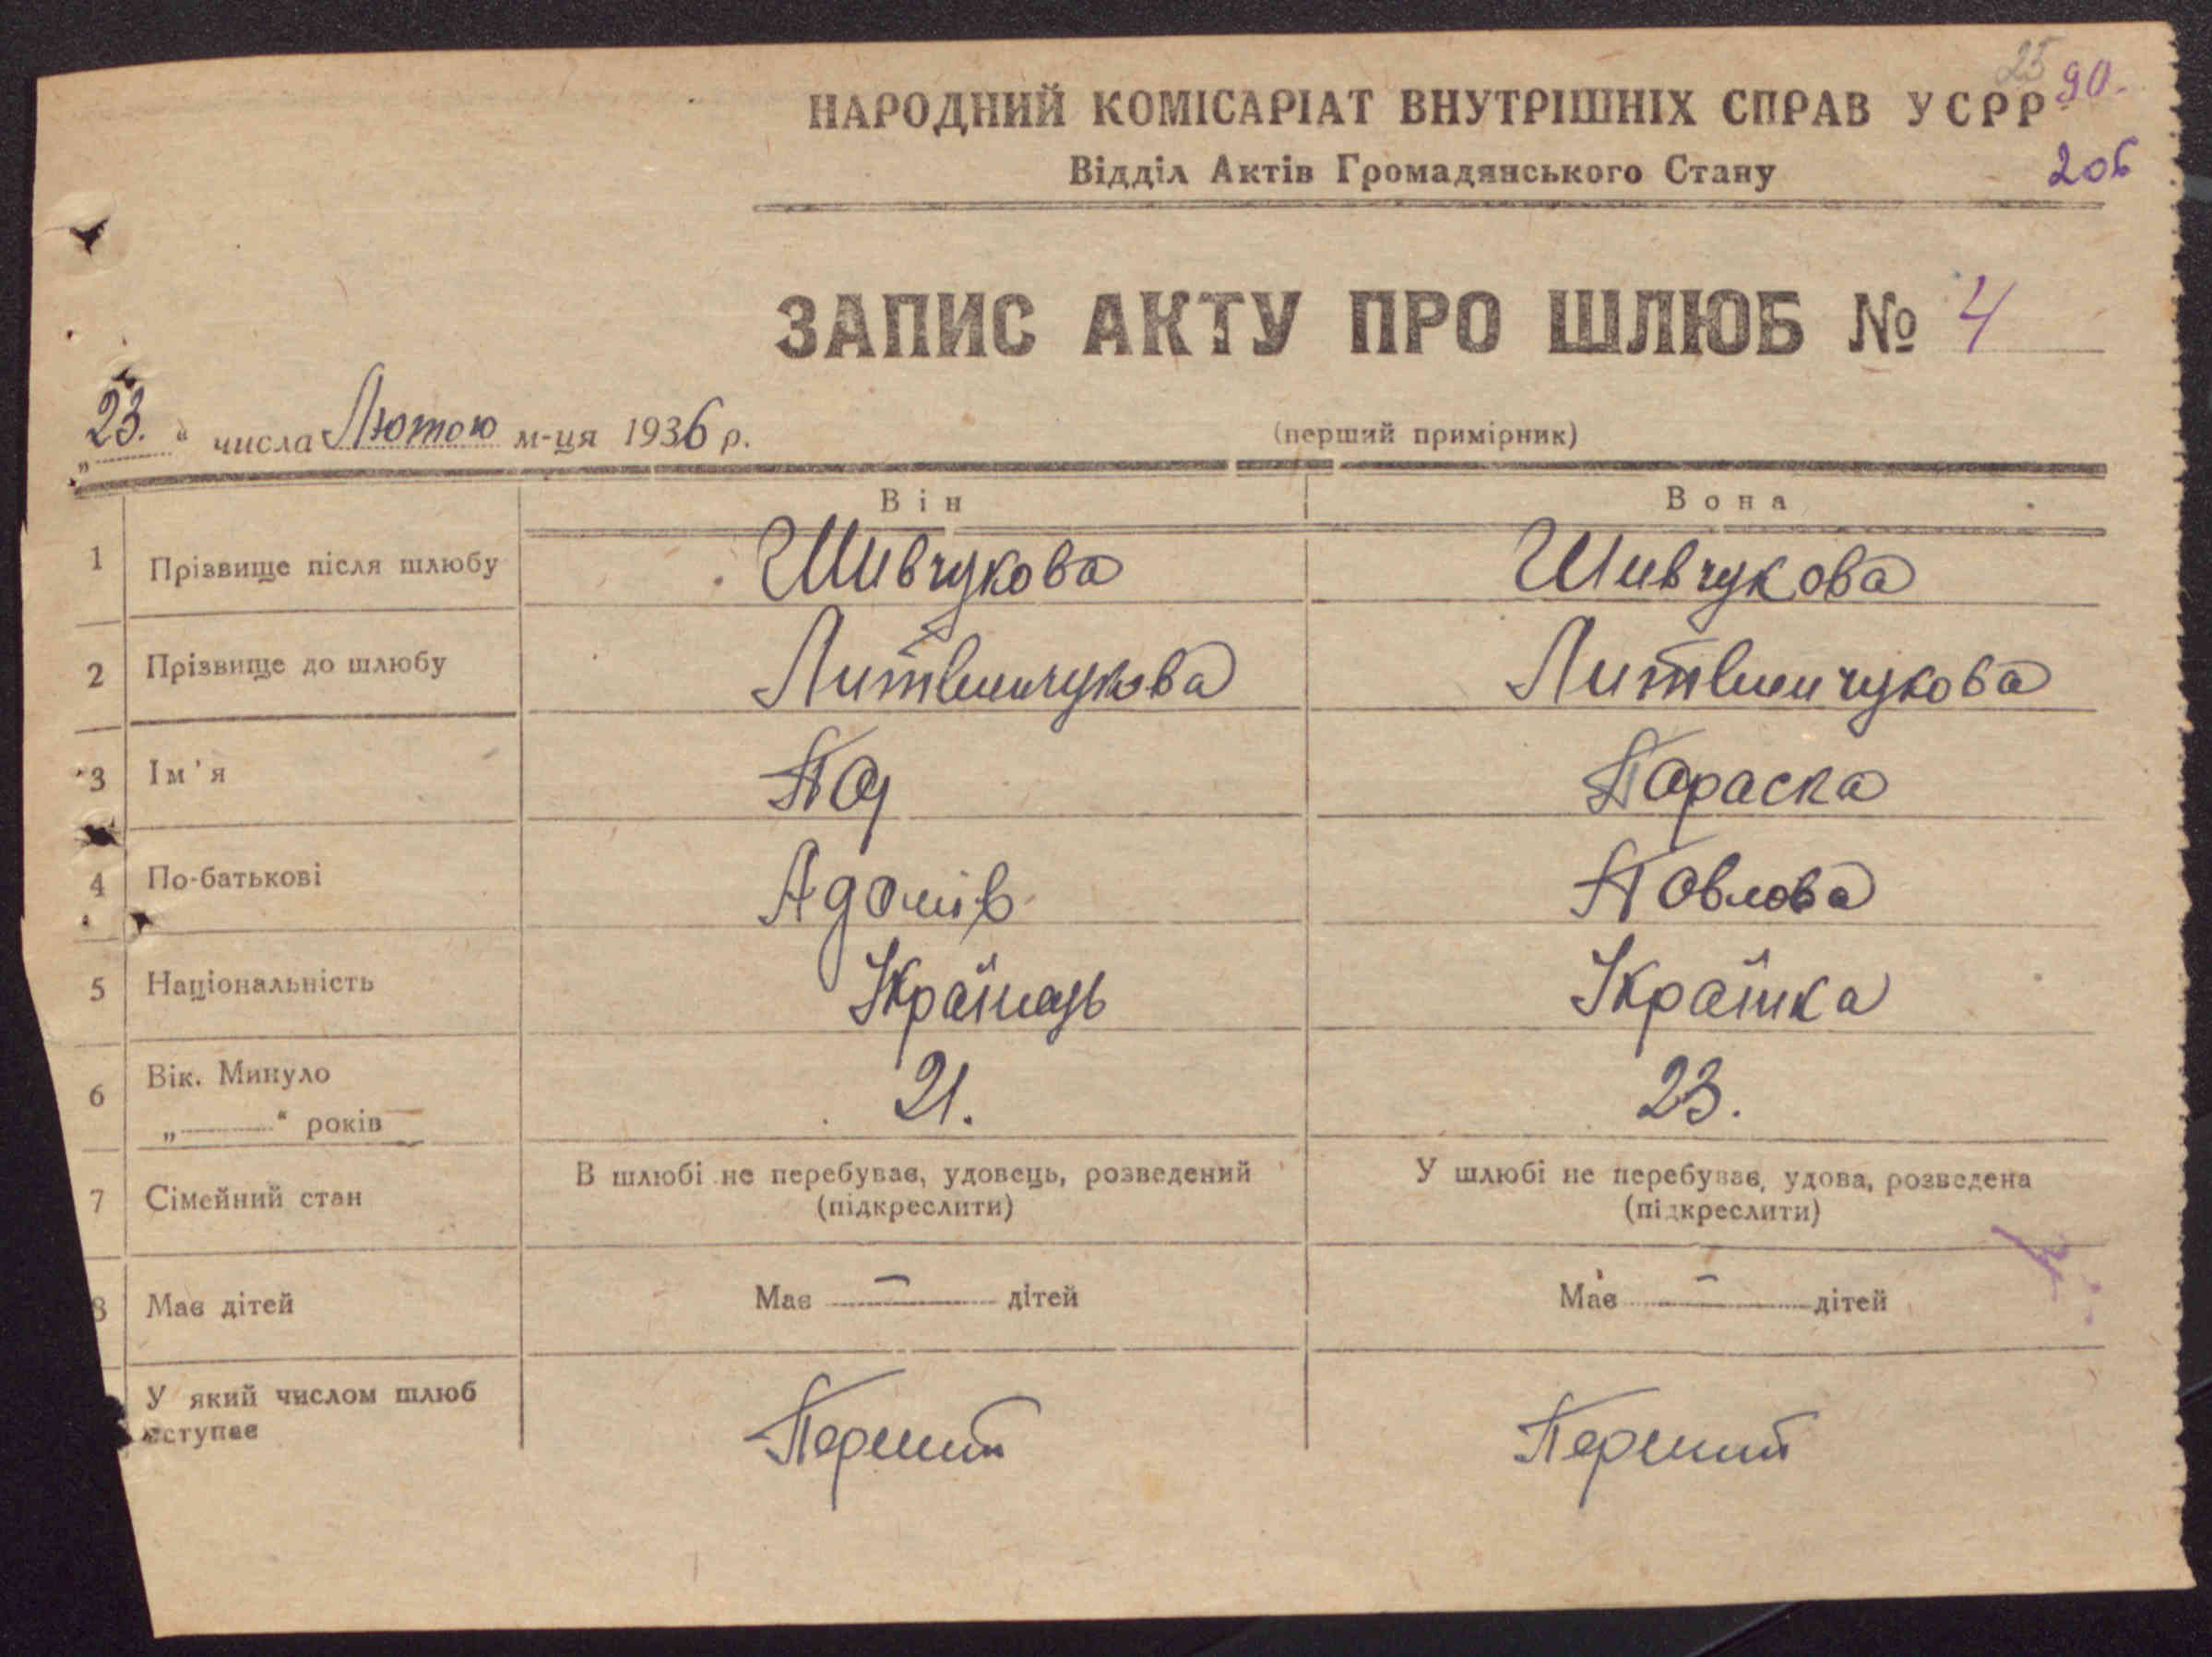 25 90.
НАРОДНИЙ КОМІСАРІАТ ВНУТРІШНІХ СПРАВ УСРР
Відділ Актів Громадянського Стану
206
ЗАПИС АКТУ ПРО ШЛЮБ № 4
„23.“ числа Лютого м-ця 1936 р. (перший примірник)
Він Вона
1 Прізвище після шлюбу Шивчукова Шивчукова
2 Прізвище до шлюбу Литвинчукова Литвинчукова
3 Ім'я Параска
4 По-батькові Адамів Павлова
5 Національність Українець Українка
6 Вік. Минуло 21. 23.
„———“ років
7 Сімейний стан В шлюбі не перебуває, удовець, розведений У шлюбі не перебуває, удова, розведена
(підкреслити) (підкреслити)
8 Має дітей Має — дітей Має — дітей
У який числом шлюб
вступає Перший Перший